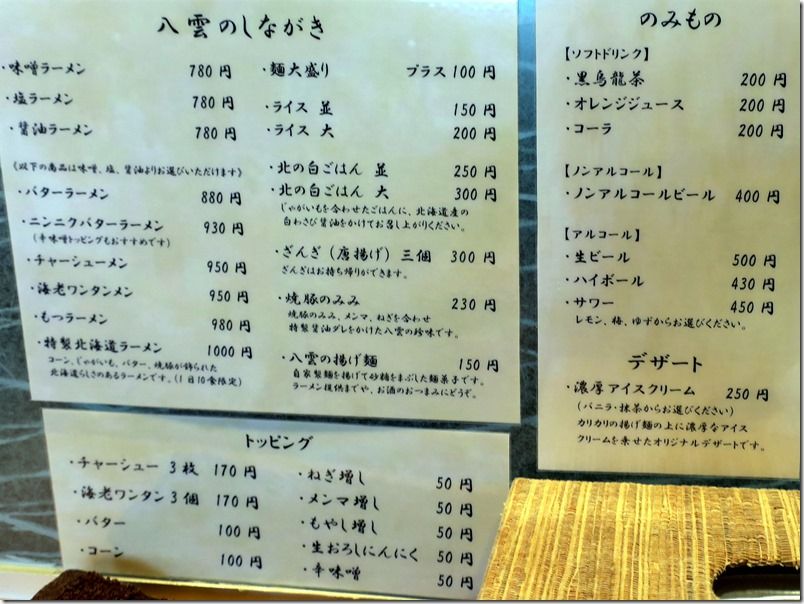 八雲のしながき
・味噌ラーメン 780 円
・塩ラーメン 780 円
・醤油ラーメン 780 円
《以下の商品は味噌、塩、醤油よりお選びいただけます》
・バターラーメン 880 円
・ニンニクバターラーメン 930 円
(辛味噌トッピングもおすすめです)
・チャーシューメン 950 円
・海老ワンタンメン 950 円
・もつラーメン 980 円
・特製北海道ラーメン 1000 円
コーン、じゃがいも、バター、焼豚が飾られた
北海道らしさのあるラーメンです。(1日10食限定)
・麺大盛り プラス 100 円
・ライス 並 150 円
・ライス 大 200 円
・北の白ごはん 並 250 円
・北の白ごはん 大 300 円
じゃがいもを合わせたごはんに、北海道産の
白わさび醤油をかけてお召し上がりください。
・ざんぎ(唐揚げ)三個 300 円
ざんぎはお持ち帰りができます。
・焼豚のみみ 230 円
焼豚のみみ、メンマ、ねぎを合わせ
特製醤油ダレをかけた八雲の珍味です。
・八雲の揚げ麺 150 円
自家製麺を揚げて砂糖をまぶした麺菓子です。
ラーメン提供までや、お酒のおつまみにどうぞ。
トッピング
・チャーシュー 3枚 170 円
・海老ワンタン 3個 170 円
・バター 100 円
・コーン 100 円
・ねぎ増し 50 円
・メンマ増し 50 円
・もやし増し 50 円
・生おろしにんにく 50 円
・辛味噌 50 円
のみもの
【ソフトドリンク】
・黒烏龍茶 200 円
・オレンジジュース 200 円
・コーラ 200 円
【ノンアルコール】
・ノンアルコールビール 400 円
【アルコール】
・生ビール 500 円
・ハイボール 430 円
・サワー 450 円
レモン、梅、ゆずからお選びください。
デザート
・濃厚アイスクリーム 250 円
(バニラ・抹茶からお選びください)
カリカリの揚げ麺の上に濃厚なアイス
クリームを乗せたオリジナルデザートです。